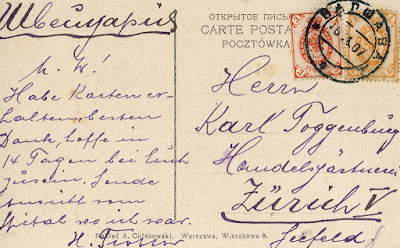 Швейцарія
ОТКРЫТОЕ ПИСЬМО
CARTE POSTALE
POCZTÓWKA
ВАРШАВА
M. W!
Habe Karten er-
halten, besten
Dank, hoffe in
14 Tagen bei Euch
zu sein, sende
Ansicht vom
Spital wo ich war.
Herrn
Karl Toggenburg
Handelsgärtnerei
Zürich V
Seefeld
Nakład A. Chlebowski, Warszawa, Wierzbowa 8.